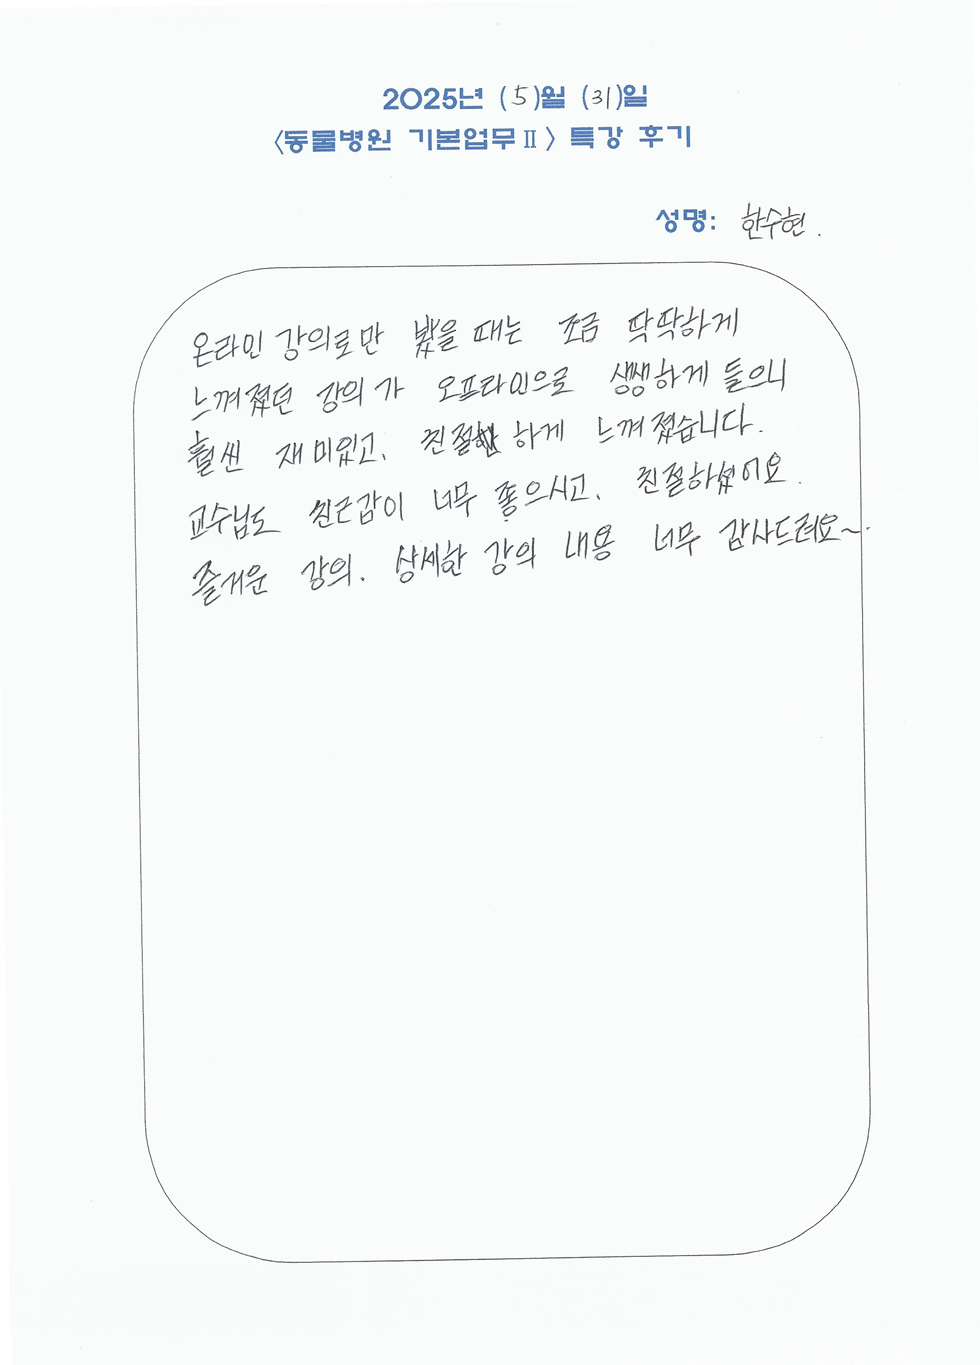 2025년 (5)월 (31)일
<동물병원 기본업무Ⅱ> 특강 후기
성명: 한수현.
온라인 강의로만 봤을 때는 조금 딱딱하게
느껴졌던 강의가 오프라인으로 생생하게 들으니
훨씬 재미있고, 친절 하게 느껴졌습니다.
교수님도 친근감이 너무 좋으시고, 친절하셨어요.
즐거운 강의, 상세한 강의 내용 너무 감사드려요~.